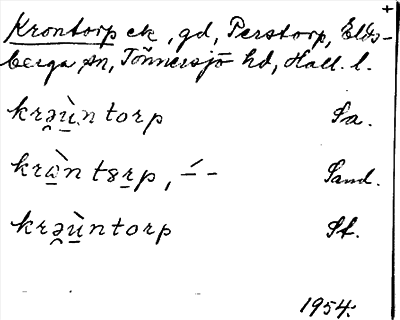 +
Krontorp ek, gd, Perstorp, Elds-
berga sn, Tönnersjö hd, Hall. l.
krə̯ṳ̀ntorp Sa.
krɷ̠̀ntɞr̠p, –́ – Sand.
krə̯ṳ̀ntorp St.
1954.